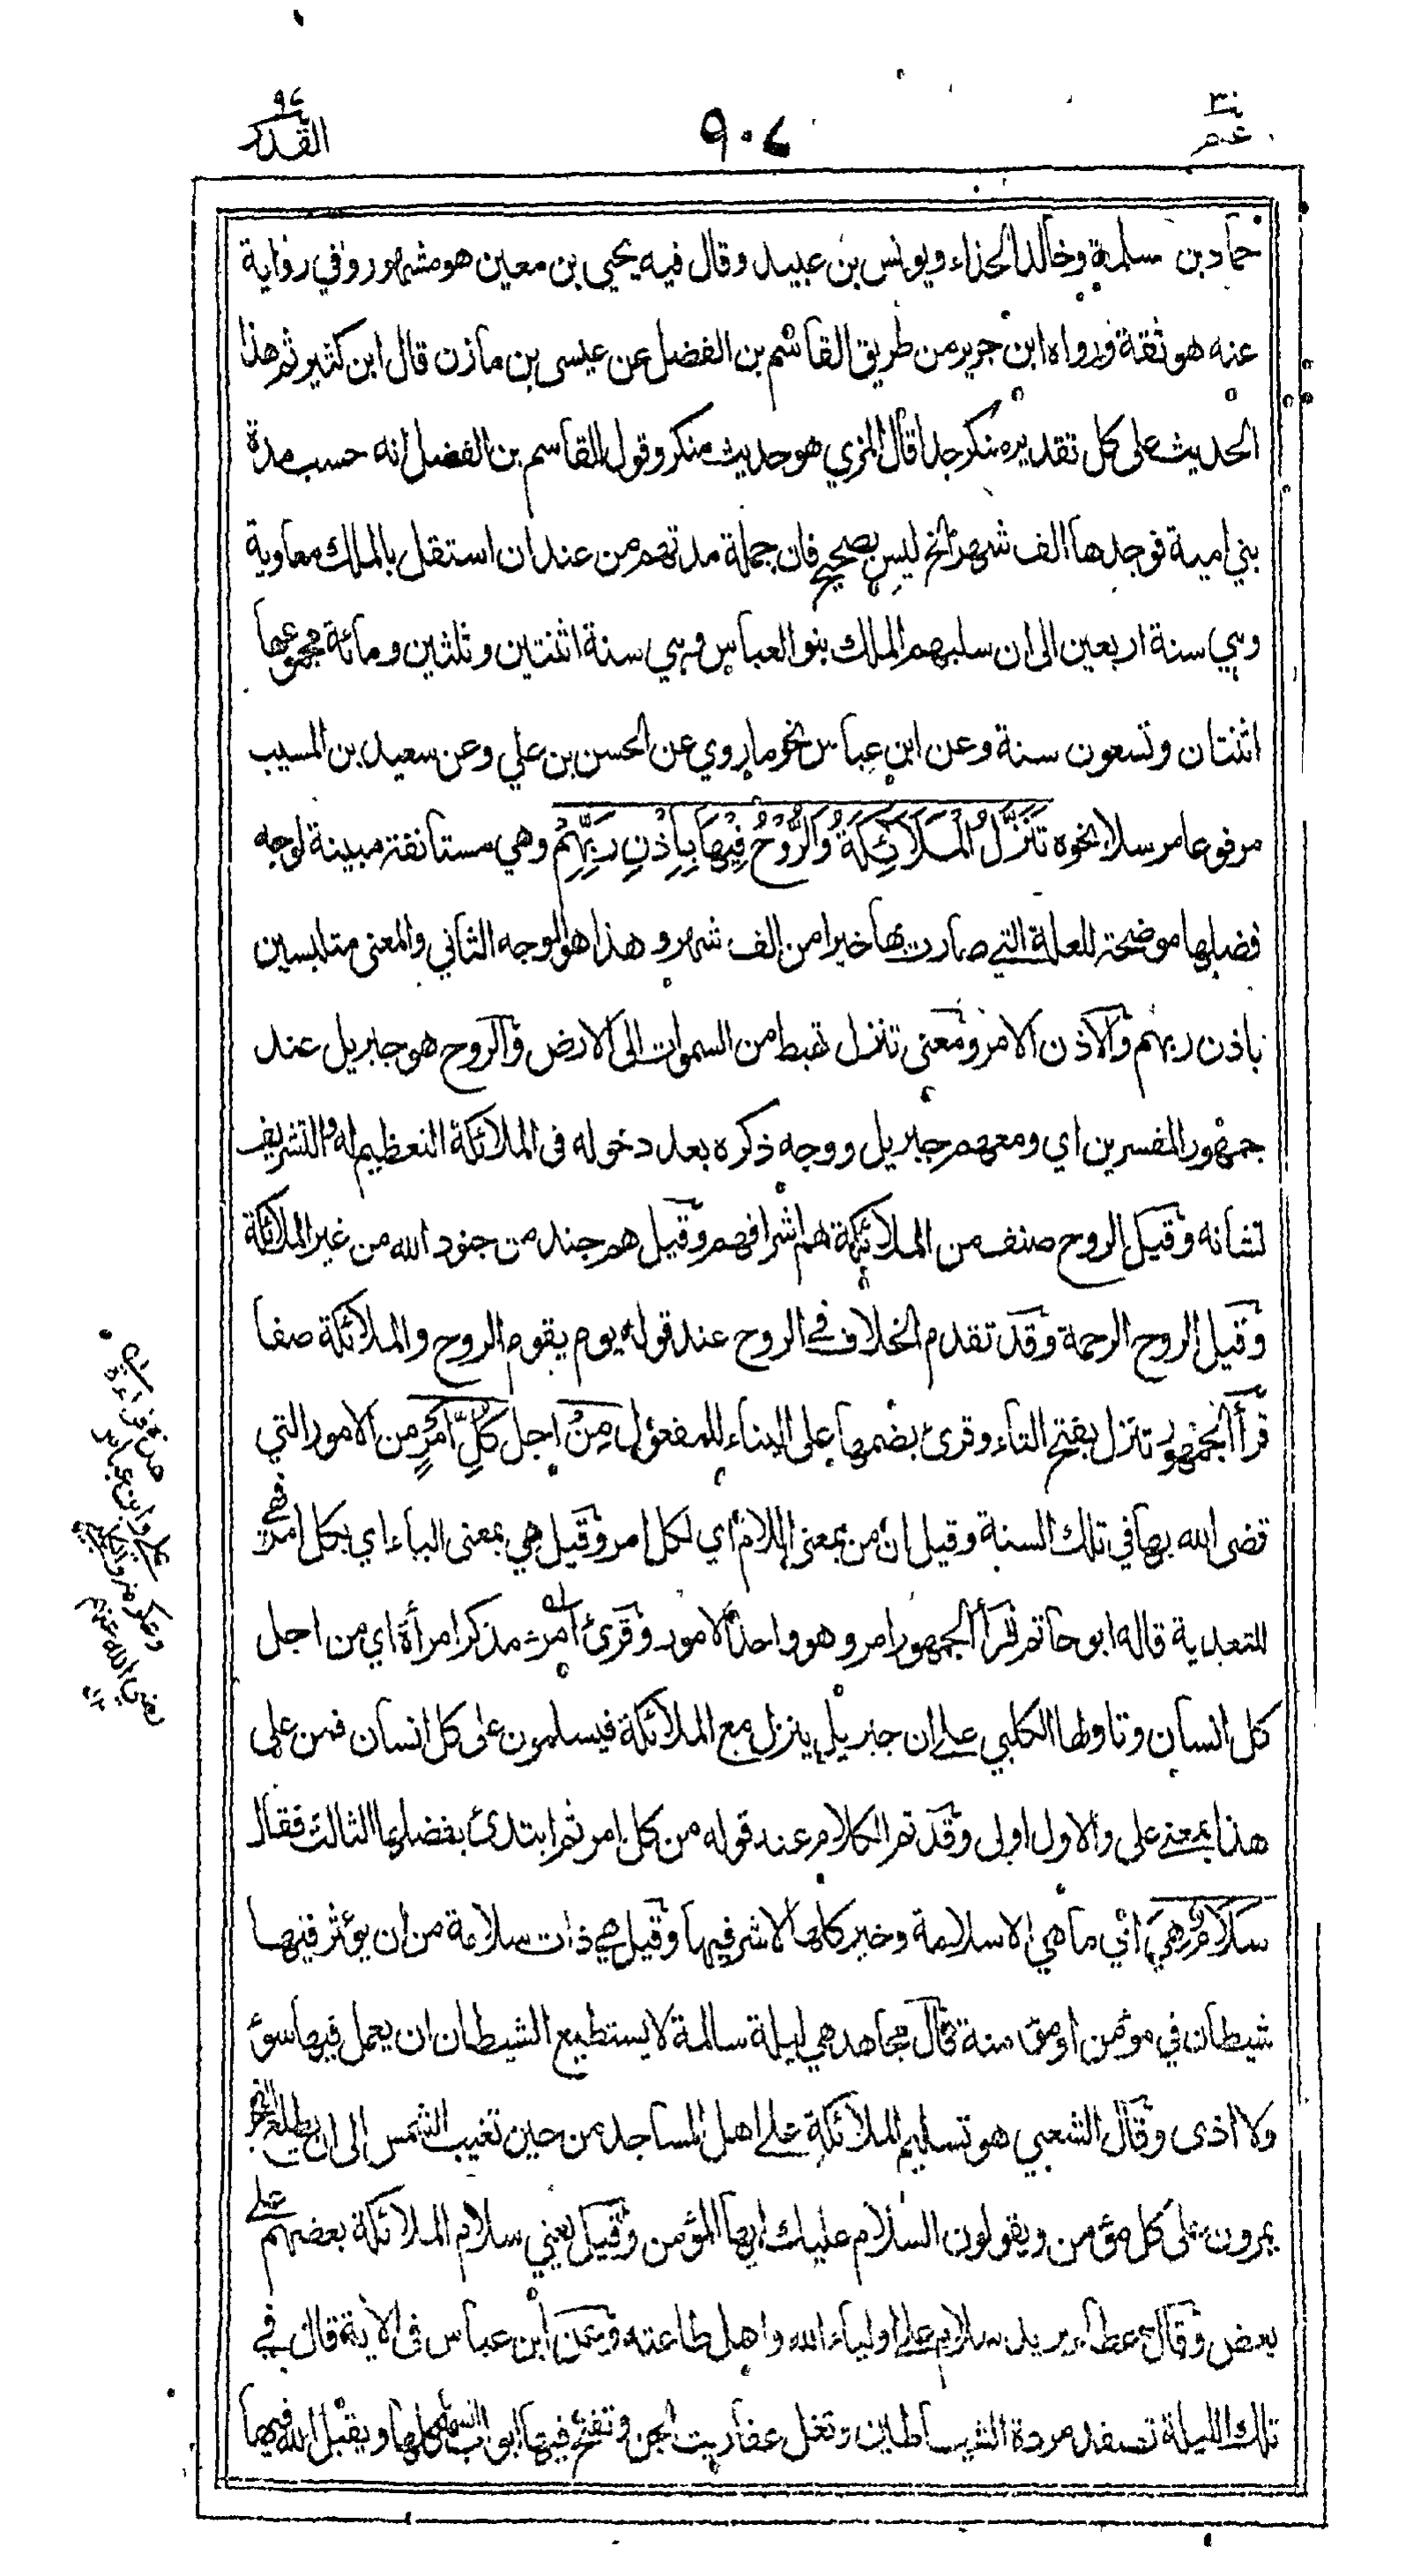 عم ٣٠
٩٠٤
القدر ٩٧
حماد بن سلمة وخالد الحذاء ويونس بن عبيد وقال فيه يحيى بن معين هو مشهور وفي رواية
عنه هو ثقة ورواه ابن جرير من طريق القاسم بن الفضل عن عيسى بن مازن قال ابن كثير ثم هذا
الحديث على كل تقدير منكر جدا قال المزي هو حديث منكر وقول القاسم بن الفضل انه حسب مدة
بني امية فوجدها الف شهر الخ ليس بصحيح فان جملة مدتهم من عند ان استقل بالملك معاوية
وهي سنة اربعين الى ان سلبهم الملك بنو العباس وهي سنة اثنتين وثلثين ومائة مجموعها
اثنتان وتسعون سنة وعن ابن عباس نحو ما روي عن الحسن بن علي وعن سعيد بن المسيب
مرفوعا مرسلا نحوه تَنَزَّلُ الْمَلَائِكَةُ وَالرُّوْحُ فِيْهَا بِاِذْنِ رَبِّهِمْ وهي مستانفة مبينة لوجه
فضلها موضحة للعلة التي صارت بها خيرا من الف شهر و هذا هو الوجه الثاني والمعنى متلبسين
باذن ربهم والاذن الامر ومعنى تنزل تهبط من السموات الى الارض والروح هو جبريل عند
جمهور المفسرين اي ومعهم جبريل ووجه ذكره بعد دخوله فى الملائكة التعظيم له والتشريف
لشانه وقيل الروح صنف من الملائكة هم اشرافهم وقيل هم جند من جنود الله من غير الملائكة
وقيل الروح الرحمة وقد تقدم الخلاف في الروح عند قوله يوم يقوم الروح والملائكة صفا
قرأ الجمهور تنزل بفتح التاء وقرئ بضمها على البناء للمفعول مِنْ اجل كُلِّ اَمْرٍ من الامور التي
قضى الله بها في تلك السنة وقيل ان من بمعنى اللام اي لكل امر وقيل هي بمعنى الباء اي بكل امر فهي
للتعدية قاله ابو حاتم قرأ الجمهور امر وهو واحد الامور وقرئ امرئ مذكر امرأة اي من اجل
كل انسان وتاولها الكلبي على ان جبريل ينزل مع الملائكة فيسلمون على كل انسان فمن على
هذا بمعنى على والاول اولى وقد تم الكلام عند قوله من كل امر ثم ابتدئ بفضلها الثالث فقال
سَلَامٌ هِيَ اي ما هي الا سلامة وخير كلها لا شر فيها وقيل هي ذات سلامة من ان يؤثر فيها
شيطان في مؤمن او مؤمنة قال مجاهد هي ليلة سالمة لا يستطيع الشيطان ان يعمل فيها سوء
ولا اذى وقال الشعبي هو تسليم الملائكة على اهل المساجد من حين تغيب الشمس الى ان يطلع الفجر
يمرون على كل مؤمن ويقولون السلام عليك ايها المؤمن وقيل يعني سلام الملائكة بعضهم على
بعض وقال عطاء يريد سلام على اولياء الله واهل طاعته وعن ابن عباس فى الآية قال في
تلك الليلة تصفد مردة الشياطين وتغل عفاريت الجن وتفتح فيها ابواب السماء كلها ويقبل الله فيها
هذه قراءة
علي وابن عباس
وعكرمة والكلبي
رضي الله عنهم